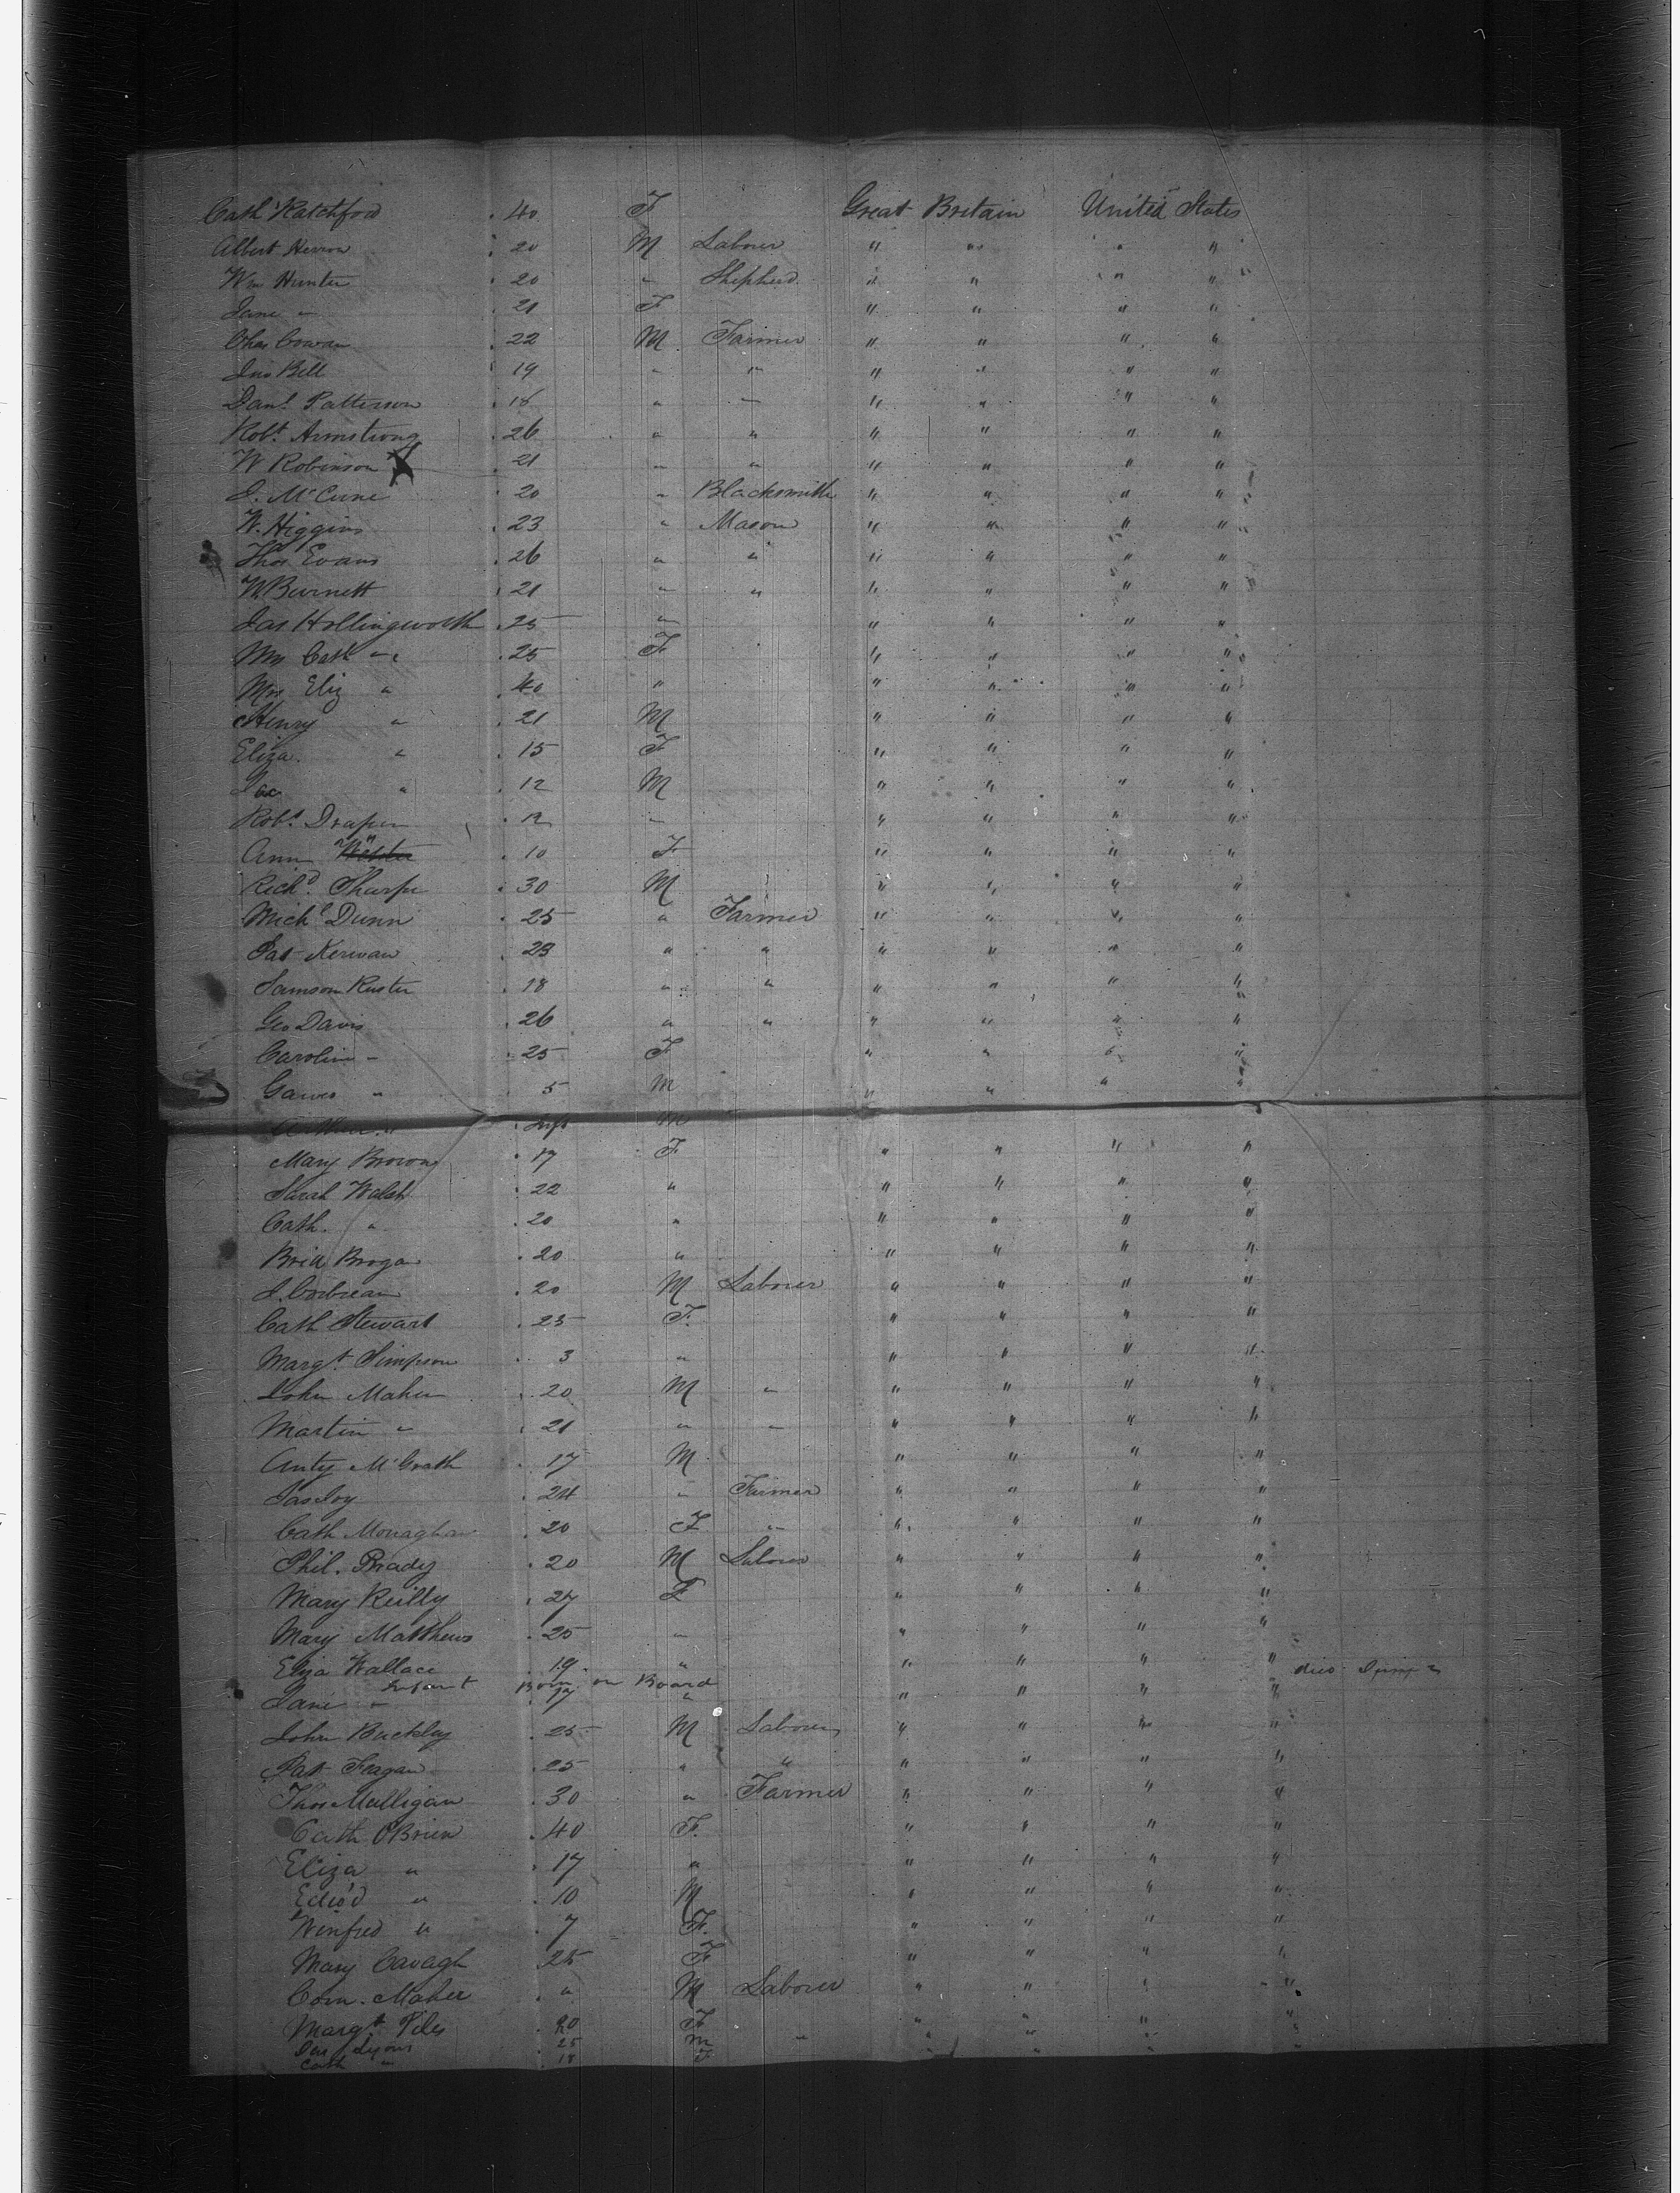 Cath Ratchford . 40 F Great Britain United States
Albert Herron . 20 M Labour " " " "
Wm Hunter . 20 " Shepherd " " " "
Jane " . 21 F " " " "
Chas Cowan . 22 M Farmer " " " "
Jno Bell . 19 " " " " " "
Danl. Patterson . 18 " " " " " "
Robt. Armstrong . 26 " " " " " "
W Robinson . 21 " " " " " "
J. McCune . 20 " Blacksmith " " " "
W. Higgins . 23 " Mason " " " "
Thos Evans . 26 " " " " " "
W Burnett . 21 " " " " " "
Jas Hollingworth . 25 " " " " "
Mrs Cath " . 25 F " " " "
Mrs Eliz " . 40 " " " " "
Henry " . 21 M " " " "
Eliza. " . 15 F " " " "
" . 12 M " " " "
Robt. Draper . 12 " " " " "
Ann " . 10 F " " " "
Richd. Sharpe . 30 M " " " "
Michl Dunn . 25 " Farmer " " " "
Pat Kerwan . 23 " " " " " "
Samson Ruster . 18 " " " " " "
Geo Davis . 26 " " " " " "
Caroline " . 25 F " " " "
" . 5 M " " " "
" . Inft M
Mary Brown . 17 F " " " "
Sarah Walsh . 22 " " " " "
Cath. " . 20 " " " " "
Brid Brogan . 20 " " " " "
J. . 20 M Labourer " " " "
Cath Stewart . 25 F. " " " "
Margt. Simpson . 3 " " " " "
John Maher . 20 M " " " " "
Martin " . 21 " " " " " "
Anty McGrath . 17 M " " " "
. 24 " Farmer " " " "
Cath Monaghan . 20 F " " " " "
Phil. Brady . 20 M Labour " " " "
Mary Reilly . 27 F " " " "
Mary Matthews . 25 " " " " "
Eliza Wallace . 19 " " " " " died
Infant Born on Board
Jane " . 17 " " " " "
John Buckley . 25 M Labourer " " " "
Pat Feagan . 25 " " " " " "
Thos Mulligan . 30 " Farmer " " " "
Cath O'Brien . 40 F. " " " "
Eliza " . 17 " " " " "
Edwd " . 10 M " " " "
Winfred " . 7 F. " " " "
Mary Cavagh 25 F " " " "
Corn. Maher . " M Labourer " " " "
Margt Piles . 20 F " " " "
Jas Lyons . 25 M " " " " "
Cath " . 18 F